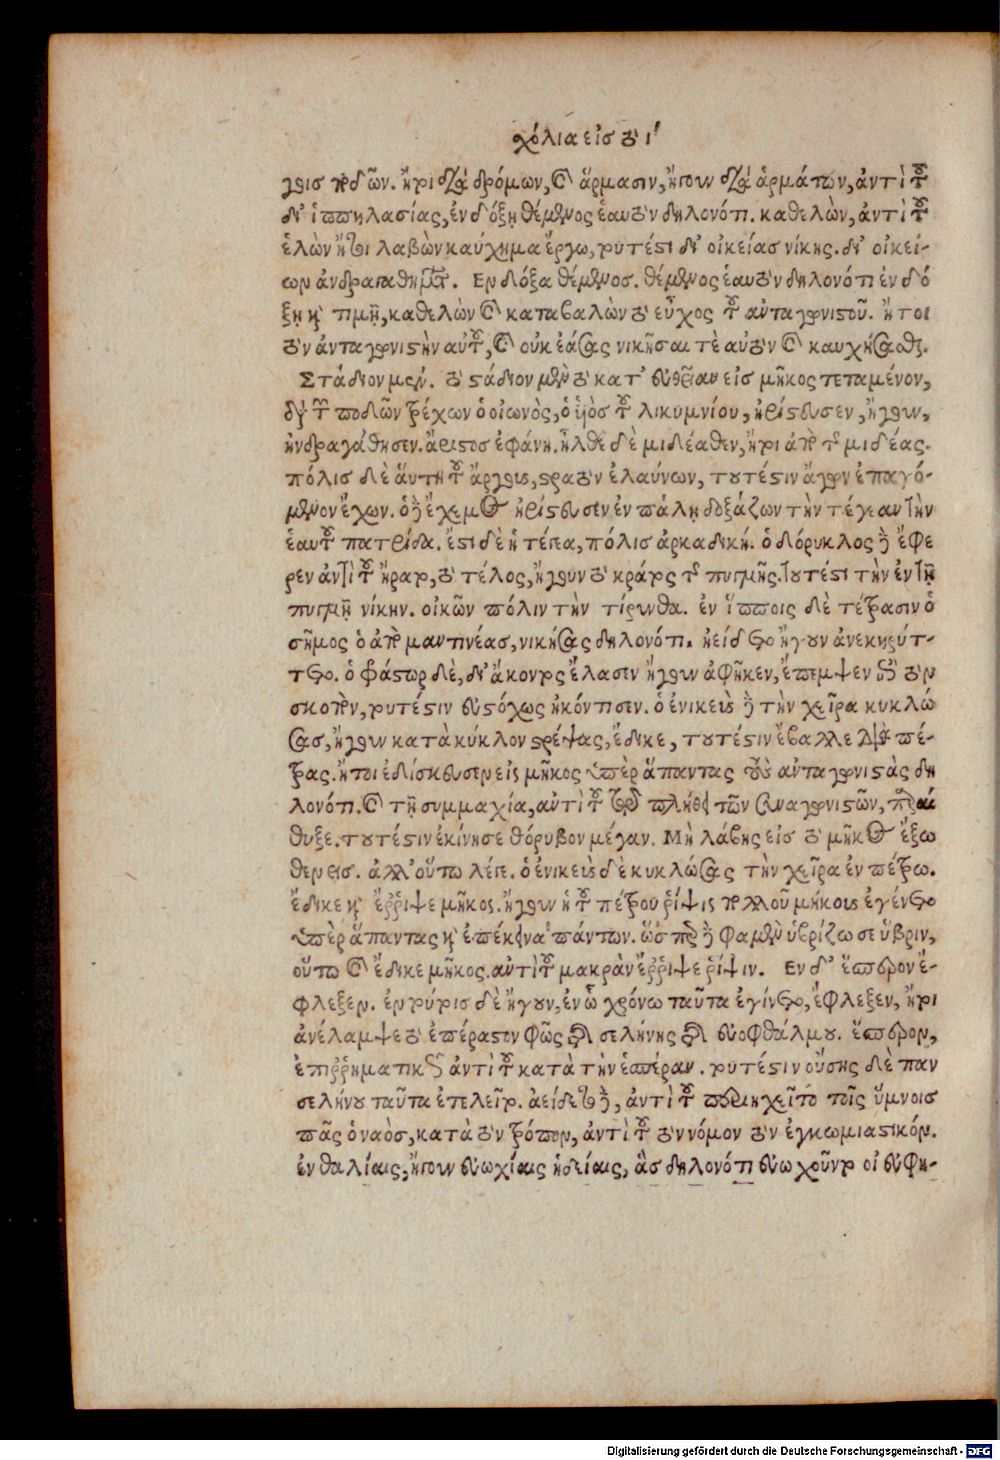 χόλια εἰς τὸ ι΄
χεις ποδῶν. ἤτοι διὰ δρόμων, καὶ ἅρμασιν, ἤγουν διὰ ἁρμάτων, ἀντὶ τοῦ
δι' ἱππηλασίας, ἐν δόξῃ θέμενος ἑαυτὸν δηλονότι. καθελὼν, ἀντὶ τοῦ
ἑλὼν ἤτοι λαβὼν καύχημα ἔργω, τουτέστι δι' οἰκείας νίκης. δι' οἰκεί-
ων ἀνδραγαθημάτων. Εν δόξα θέμενος. θέμενος ἑαυτὸν δηλονότι ἐν δό
ξῃ καὶ τιμῇ, καθελὼν καὶ καταβαλὼν τὸ εὖχος τοῦ ανταγωνιστοῦ. ἤτοι
τὸν ἀνταγωνιστὴν αὐτοῦ, καὶ οὐκ ἐάσας νικῆσαι τὲ αὐτὸν καὶ καυχήσασθαι.
Στάδιον μὲν. τὸ στάδιον μὲν τὸ κατ' εὐθεῖαν εἰς μῆκος τεταμένον,
διὰ τῶν ποδῶν τρέχων ὁ οἰωνὸς, ὁ υἱὸς τοῦ λικυμνίου, ἠρίστευσεν, ἤγουν,
ἠνδραγάθησεν. ἄριστος ἐφάνη. ἦλθε δὲ μιδέαθεν, ἤτοι ἀπὸ τῆς μιδέας.
πόλις δὲ ἅυτη τοῦ ἄργους, στρατὸν ἐλαύνων, τουτέστιν ἄγων ἐπαγό-
μενον ἔχων. ὁ δὲ ἔχεμος ἠρίστευσεν ἐν πάλῃ δοξάζων τὴν τέγεαν τὴν
ἑαυτοῦ πατρίδα. ἔστι δὲ ἡ τέγεα, πόλις ἀρκαδική. ὁ δόρυκλος δὲ ἔφε
ρεν ἀντὶ τοῦ ἤρατο, τὸ τέλος, ἤγουν τὸ κράτος τῆς πυγμῆς. τουτέστι τὴν ἐν τῇ
πυγμῇ νίκην. οἰκῶν πόλιν τὴν τίρυνθα. ἐν ἵπποις δὲ τέτρασιν ὁ
σῆμος ὁ ἀπὸ μαντινέας, νικήσας δηλονότι. ἠείδετο ἤγουν ἀνεκηρύτ-
τετο. ὁ φράστωρ δὲ, δι' ἄκοντος ἔλασεν ἤγουν ἀφῆκεν, ἔπεμψεν εἰς τὸν
σκοπὸν, τουτέστιν εὐστόχως ἠκόντισεν. ὁ ἐνικεὺς δὲ τὴν χεῖρα κυκλώ
σας, ἤγουν κατὰ κύκλον στρέψας, ἔδικε, τουτέστιν ἔβαλλε διὰ πέ-
τρας. ἤτοι ἐδίσκευσεν εἰς μῆκος ὑπὲρ ἅπαντας τοὺς ανταγωνιστὰς δη
λονότι. καὶ τῇ συμμαχία, αντὶ τοῦ τῷ πλήθει τῶν συναγωνιστῶν, παραί
θυξε. τουτέστιν ἐκίνησε θόρυβον μέγαν. Μὴ λάβης εἰς τὸ μῆκος ἔξω
θεν εις. ἀλλ' οὕτω λέγε. ὁ ἐνικεὺς δὲ κυκλώσας τὴν χεῖρα ἐν πέτρω.
ἔδικε καὶ ἔῤῥιψε μῆκος. ἤγουν ἡ τοῦ πέτρου ῥίψις πολλοῦ μήκους ἐγένετο
ὑπὲρ ἅπαντας καὶ ἐπέκεινα πάντων. ὥσπερ δὲ φαμὲν ὑβρίζω σε ὕβριν,
οὕτω καὶ ἔδικε μῆκος. αντὶ τοῦ μακρὰν ἔῤῥιψε ῥίψιν. Εν δ' ἕσπερον ἔ-
φλεξεν. ἐν τούτοις δὲ ἤγουν, ἐν ᾧ χρόνω ταῦτα ἐγίνετο, ἔφλεξεν, ἤτοι
ἀνέλαμψε τὸ ἐπέραστον φῶς τῆς σελήνης τῆς εὐοφθάλμου. ἕσπερον,
ἐπιῤῥηματικῶς ἀντὶ τοῦ κατὰ τὴν ἑσπέραν. τουτέστιν οὔσης δὲ παν
σελήνου ταῦτα ἐτελεῖτο. ἀείδετο δὲ, ἀντὶ τοῦ περιηχεῖτο τοῖς ὕμνοις
πᾶς ὁ ναὸς, κατὰ τὸν τρόπον, ἀντὶ τοῦ τὸν νόμον τὸν ἐγκωμιαστικόν.
ἐν θαλίαις, ἤγουν εὐωχίαις ἡστίαις, ἃς δηλονότι εὐωχοῦντο οἱ εὐφη-
Digitalisierung gefördert durch die Deutsche Forschungsgemeinschaft - DFG